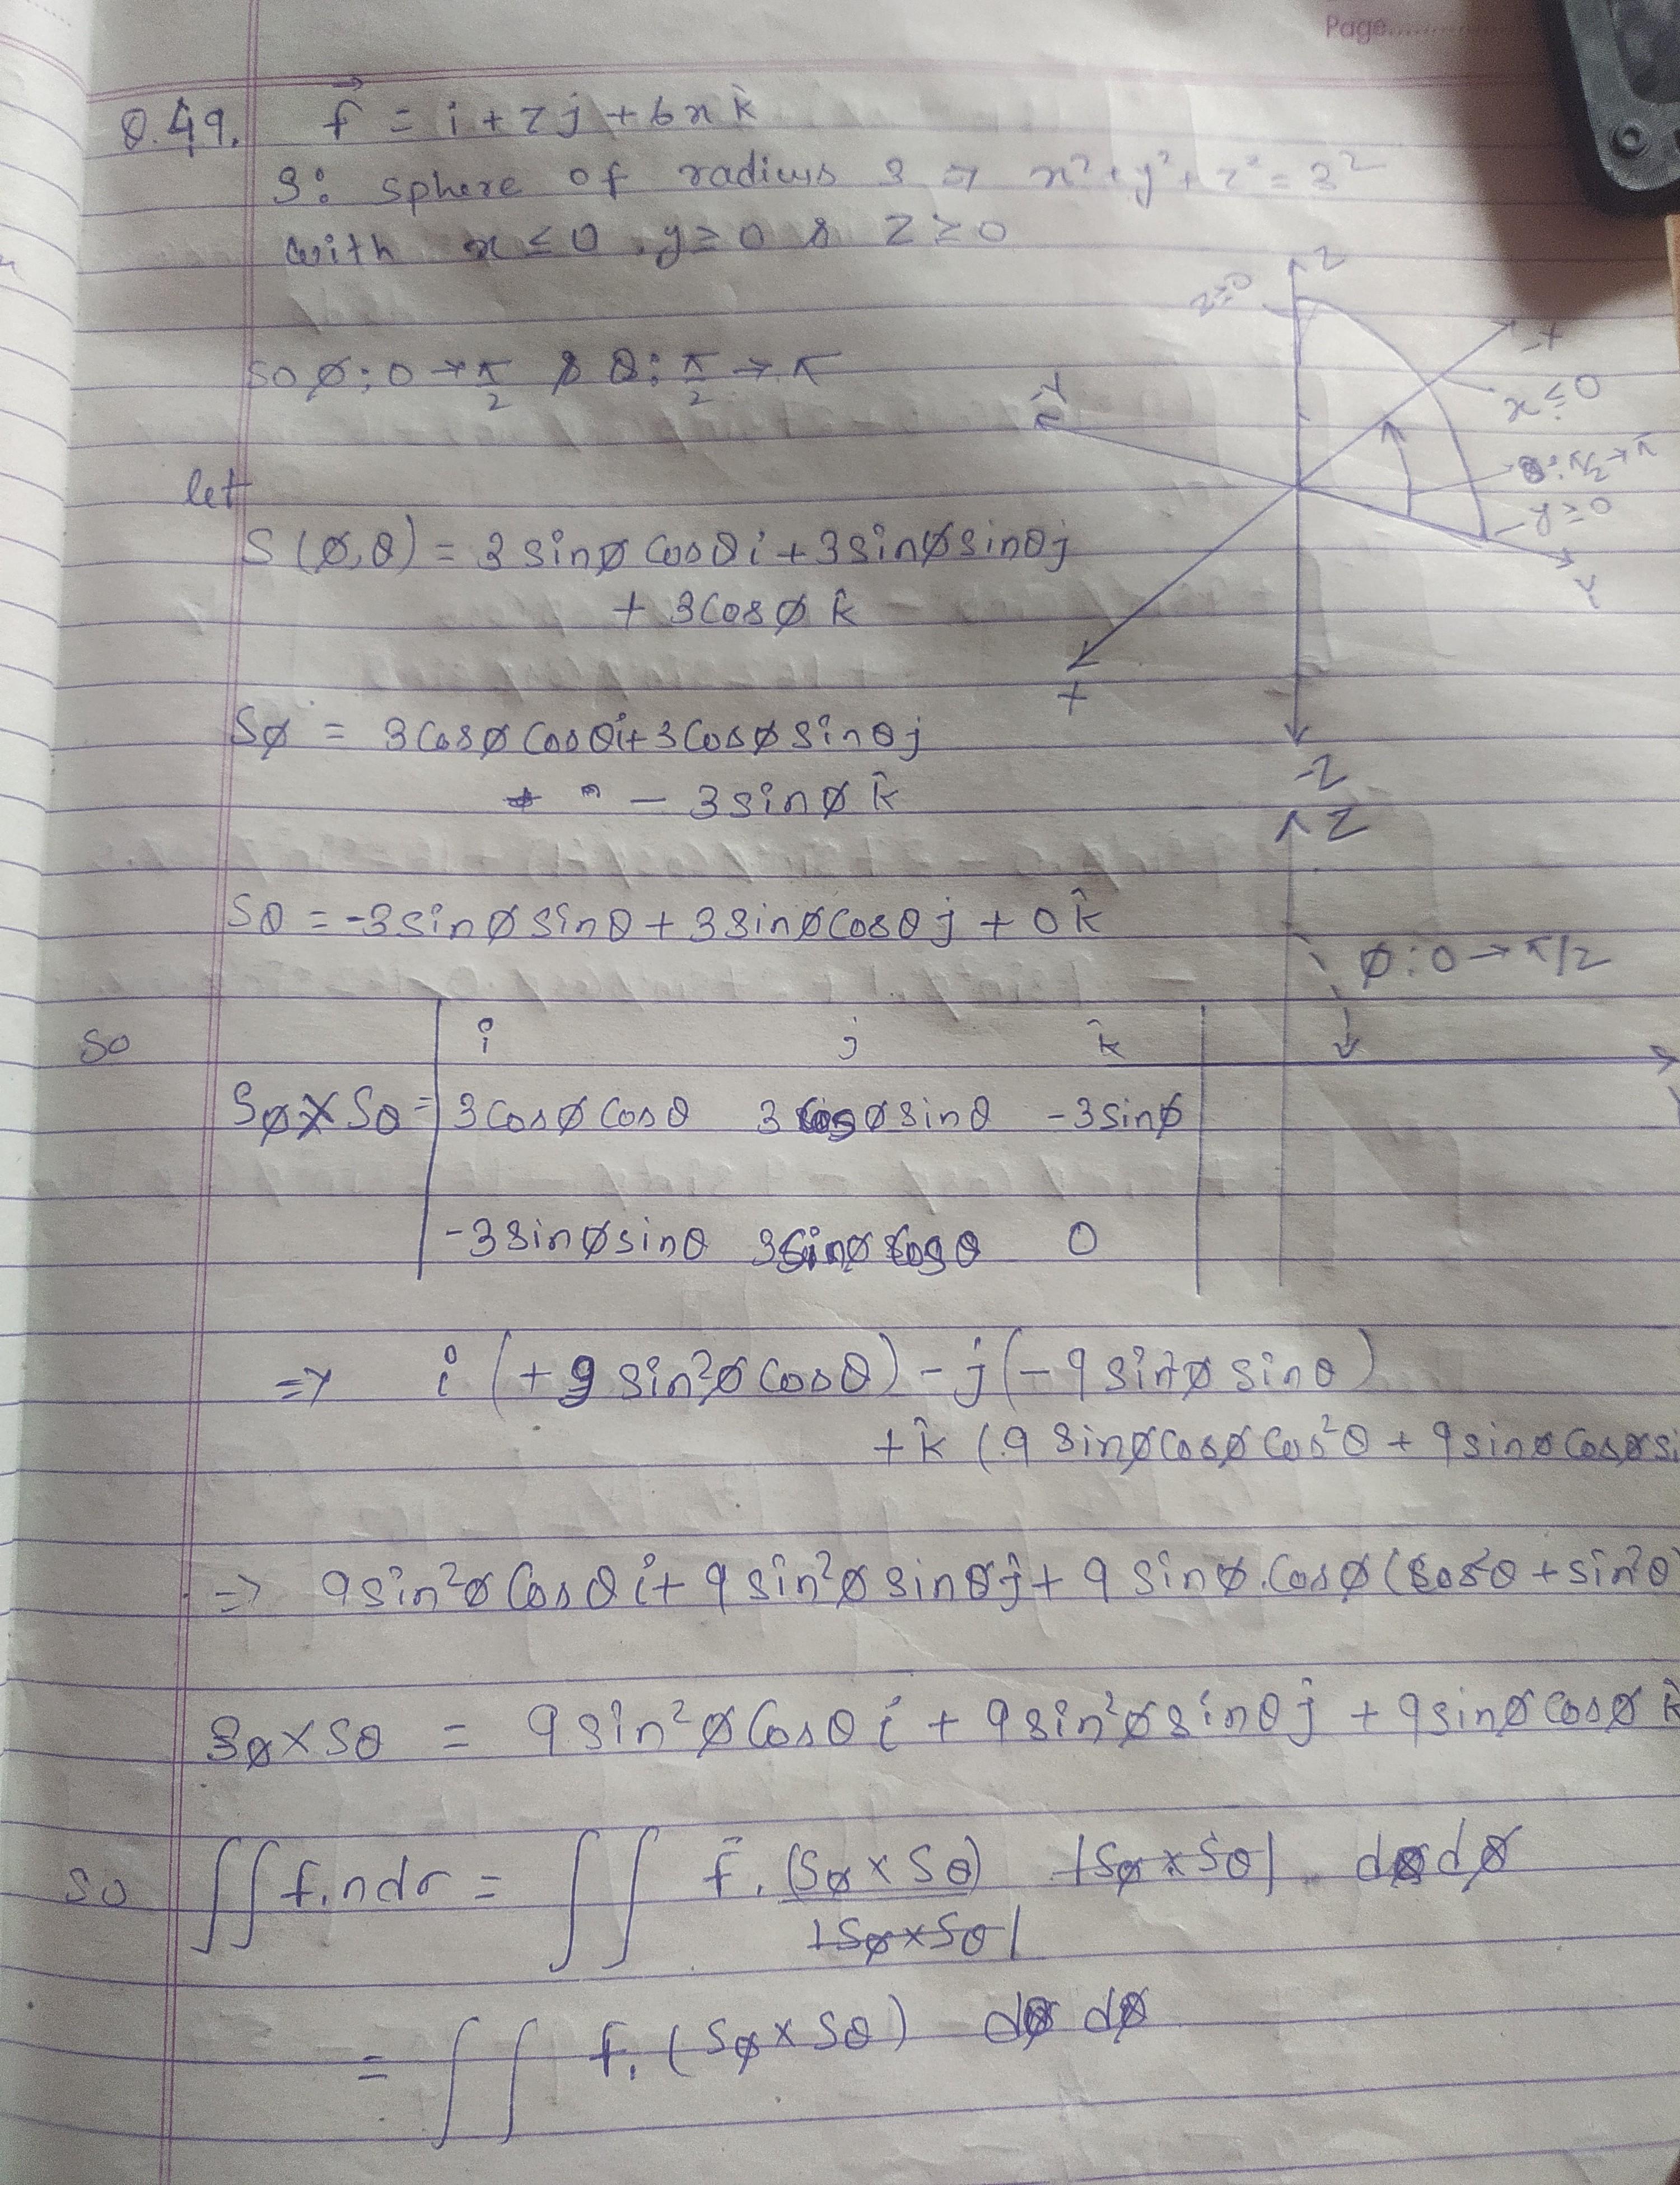 Page
Q.49. f⃗ = i + zj + 6x k̂
S: sphere of radius 3 ⇒ x² + y² + z² = 3²
with x ≤ 0, y ≥ 0 & z ≥ 0
so φ: 0 → π/2 & θ: π/2 → π
Z
z≥0
-X
-Y
x ≤ 0
θ: π/2 → π
y ≥ 0
Y
X
-Z
let
S(φ,θ) = 3 sinφ cosθ i + 3 sinφ sinθ j
+ 3 cosφ k̂
Sφ = 3 cosφ cosθ i + 3 cosφ sinθ j
- 3 sinφ k̂
Z
φ: 0 → π/2
Sθ = -3 sinφ sinθ + 3 sinφ cosθ j + 0 k̂
so i j k̂
Sφ × Sθ = 3 cosφ cosθ 3 cosφ sinθ -3 sinφ
-3 sinφ sinθ 3 sinφ cosθ 0
⇒ i (+9 sin²φ cosθ) - j (-9 sin²φ sinθ)
+ k̂ (9 sinφ cosφ cos²θ + 9 sinφ cosφ si
⇒ 9 sin²φ cosθ i + 9 sin²φ sinθ j + 9 sinφ. cosφ (cos²θ + sin²θ)
Sφ × Sθ = 9 sin²φ cosθ i + 9 sin²φ sinθ j + 9 sinφ cosφ k̂
so ∬ f.n dσ = ∬ f⃗. (Sφ × Sθ) / |Sφ × Sθ| |Sφ × Sθ| dθ dφ
= ∬ f. (Sφ × Sθ) dθ dφ